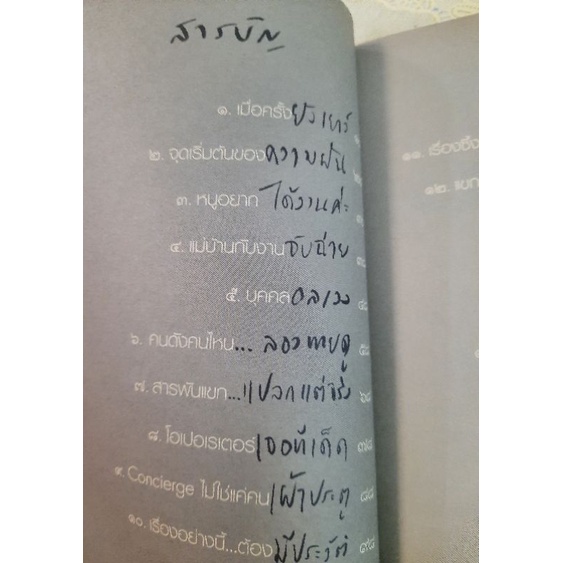 สารบัญ
๑. เมื่อครั้งยังเยาว์
๒. จุดเริ่มต้นของความฝัน
๓. หนูอยากได้งานค่ะ
๔. แม่บ้านกับงานจับฉ่าย
๕. บุคคลอลเวง ๔๘
๖. คนดังคนไหน...ลองทายดู ๕๘
๗. สารพันแขก...แปลกแต่จริง ๖๘
๘. โอเปอเรเตอร์เจอทีเด็ด ๗๘
๙. Concierge ไม่ใช่แค่คนเฝ้าประตู ๘๘
๑๐. เรื่องอย่างนี้...ต้องมีประวัติ ๙๘
๑๑. เรื่องซึ้ง
๑๒. แขก